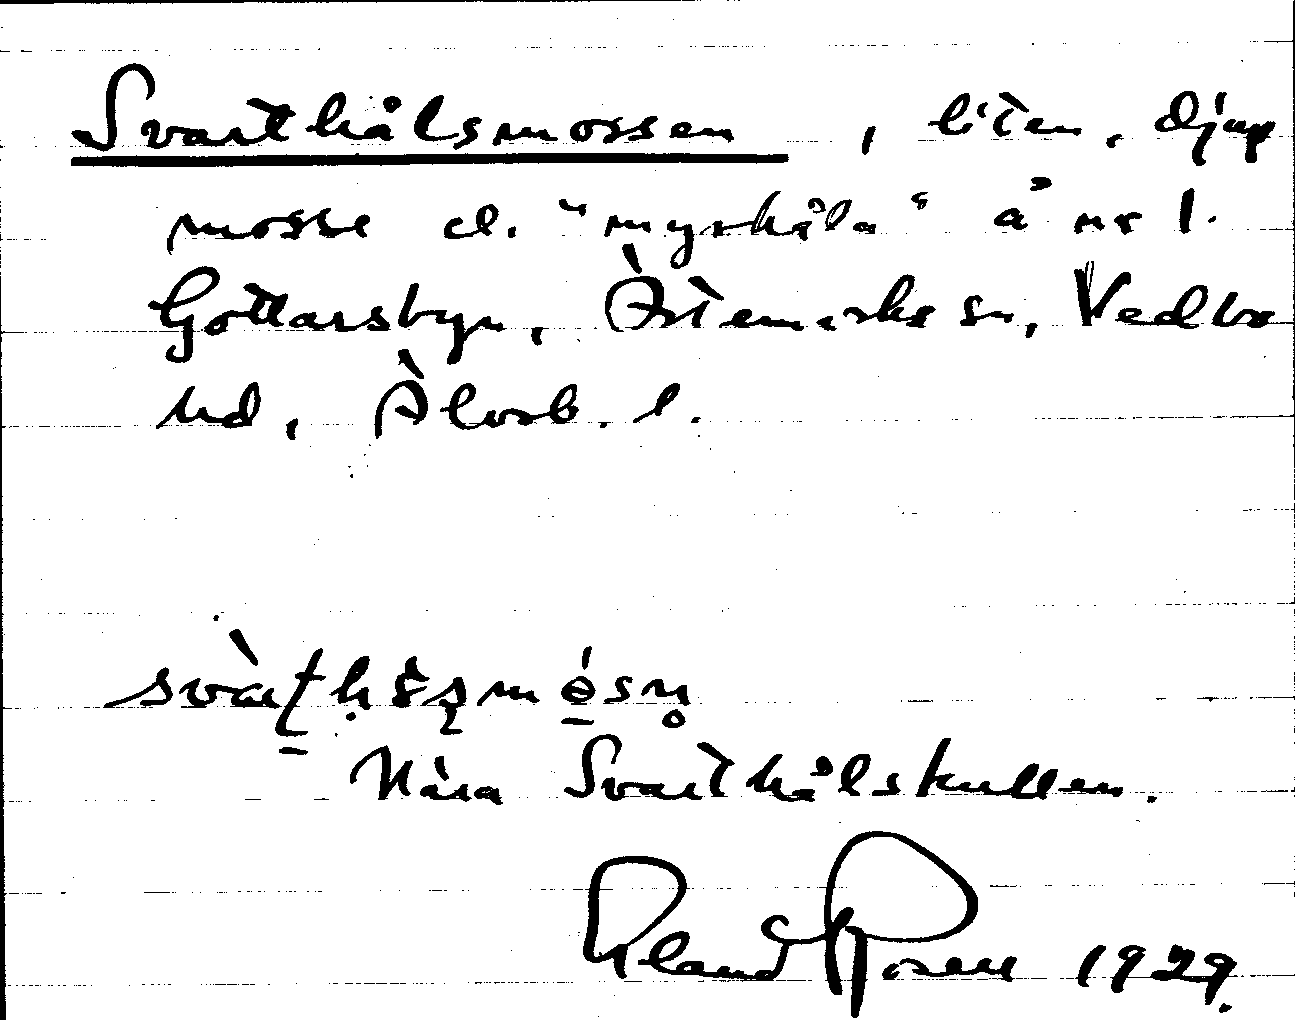 Svarthålsmossen, liten, djup
mosse el. "myrhåla" å nr 1.
Gottarsbyn, Ärtemarks sn, Vedbo
hd, Älvsb. l.
Nära Svarthålskullen.
Erland Rosell 1929.